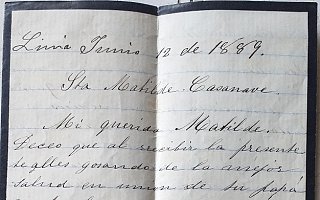 Lima Junio 12 de 1889.
Sta Matilde Casanave.
Mi querida Matilde.
Deceo que al recibir la presente
te alles gosando de la mejor
salud en union de su papá